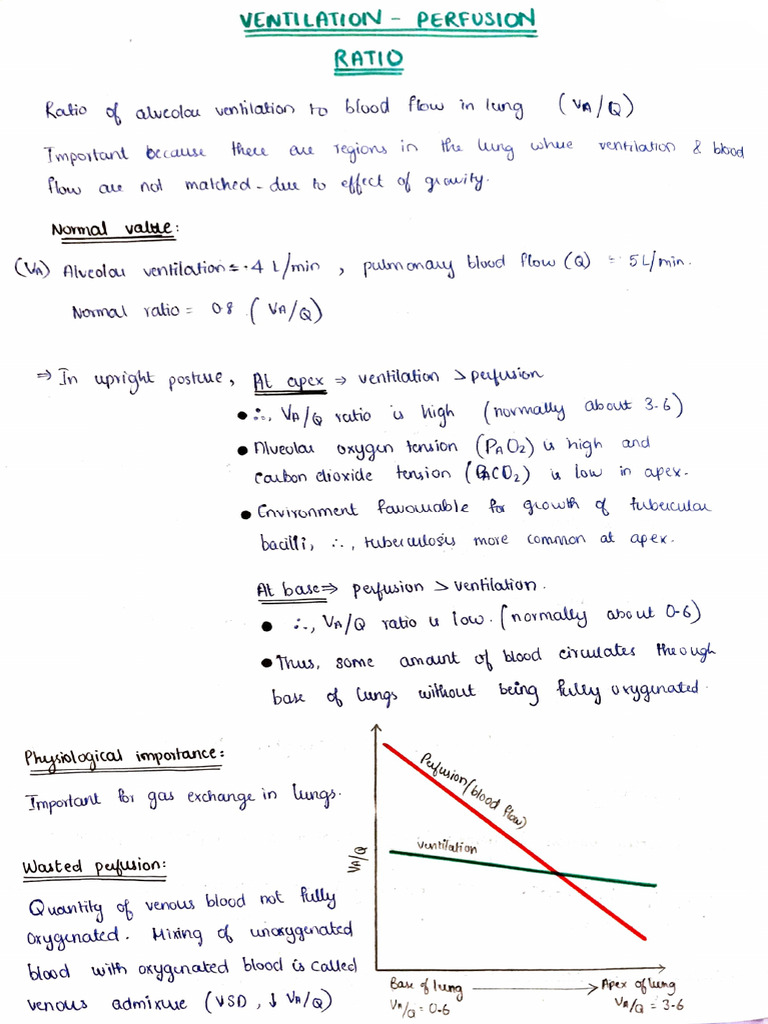 VENTILATION - PERFUSION
RATIO
Ratio of alveolar ventilation to blood flow in lung (VA/Q)
Important because there are regions in the lung where ventilation & blood
flow are not matched - due to effect of gravity.
Normal value:
(VA) Alveolar ventilation = 4 L/min, pulmonary blood flow (Q) = 5L/min.
Normal ratio = 0.8 (VA/Q)
⇒ In upright posture, At apex ⇒ ventilation > perfusion
• ∴, VA/Q ratio is high (normally about 3.6)
• Alveolar oxygen tension (PAO2) is high and
carbon dioxide tension (PACO2) is low in apex.
• Environment favourable for growth of tubercular
bacilli, ∴, tuberculosis more common at apex.
At base ⇒ perfusion > ventilation.
• ∴, VA/Q ratio is low. (normally about 0.6)
• Thus, some amount of blood circulates through
base of lungs without being fully oxygenated.
Physiological importance:
Important for gas exchange in lungs.
Wasted perfusion:
Quantity of venous blood not fully
oxygenated. Mixing of unoxygenated
blood with oxygenated blood is called
venous admixure (VSD, ↓ VA/Q)
Perfusion/(blood flow)
ventilation
VA/Q
Base of lung → Apex of lung
VA/Q = 0.6 VA/Q = 3.6